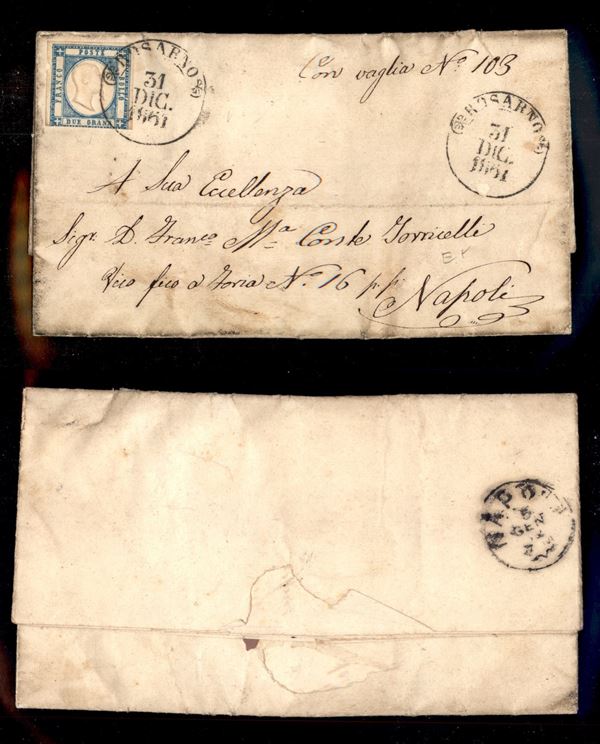 FRANCO
POSTE
BOLLO
DUE GRANA
ROSARNO
31
DIC.
1861
Con vaglia Nº 103
ROSARNO
31
DIC.
1861
A Sua Eccellenza
Sigr. D. Franco Mª Conte Torricelli
Vico a Foria Nº 16 p. p.
Napoli
NAPOLI
GEN